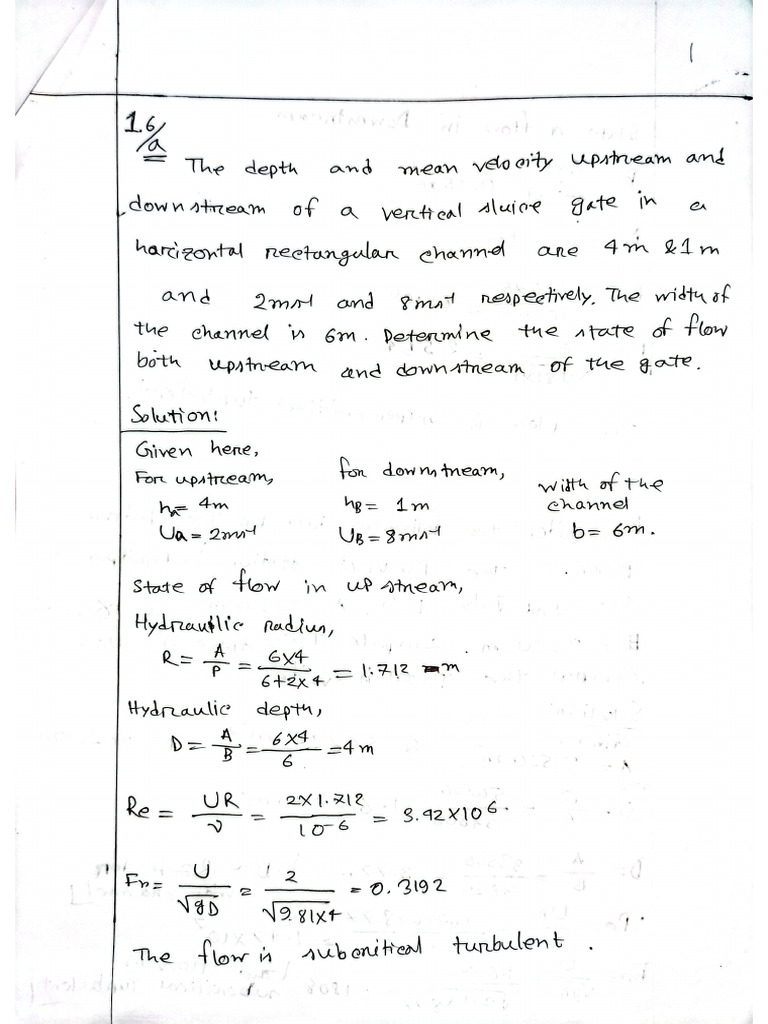 1
1.6/a
The depth and mean velocity upstream and
downstream of a vertical sluice gate in a
horizontal rectangular channel are 4m & 1m
and 2ms⁻¹ and 8ms⁻¹ respectively. The width of
the channel is 6m. Determine the state of flow
both upstream and downstream of the gate.
Solution:
Given here,
For upstream, for downstream, width of the channel
hₐ= 4m h_B= 1m b= 6m.
Uₐ= 2ms⁻¹ U_B= 8ms⁻¹
State of flow in up stream,
Hydraulic radius,
R= A/P = 6x4/6+2x4 = 1.712 m
Hydraulic depth,
D= A/B = 6x4/6 =4 m
Re = UR/ν = 2x1.712/10⁻⁶ = 3.42x10⁶.
Fr= U/√gD = 2/√9.81x4 = 0.3192
The flow is subcritical turbulent.